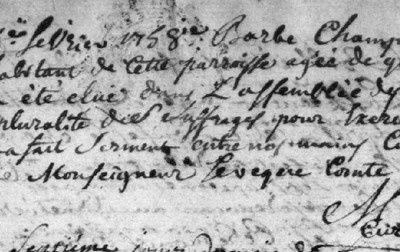 fevrier 1758 Barbe Champ
habitant de cette parroisse agée de q
a été elue dans L'assemblée de
pluralité de Suffrages pour Exer
a fait Serment entre nos mains
Monseigneur Leveque Comte
Septieme